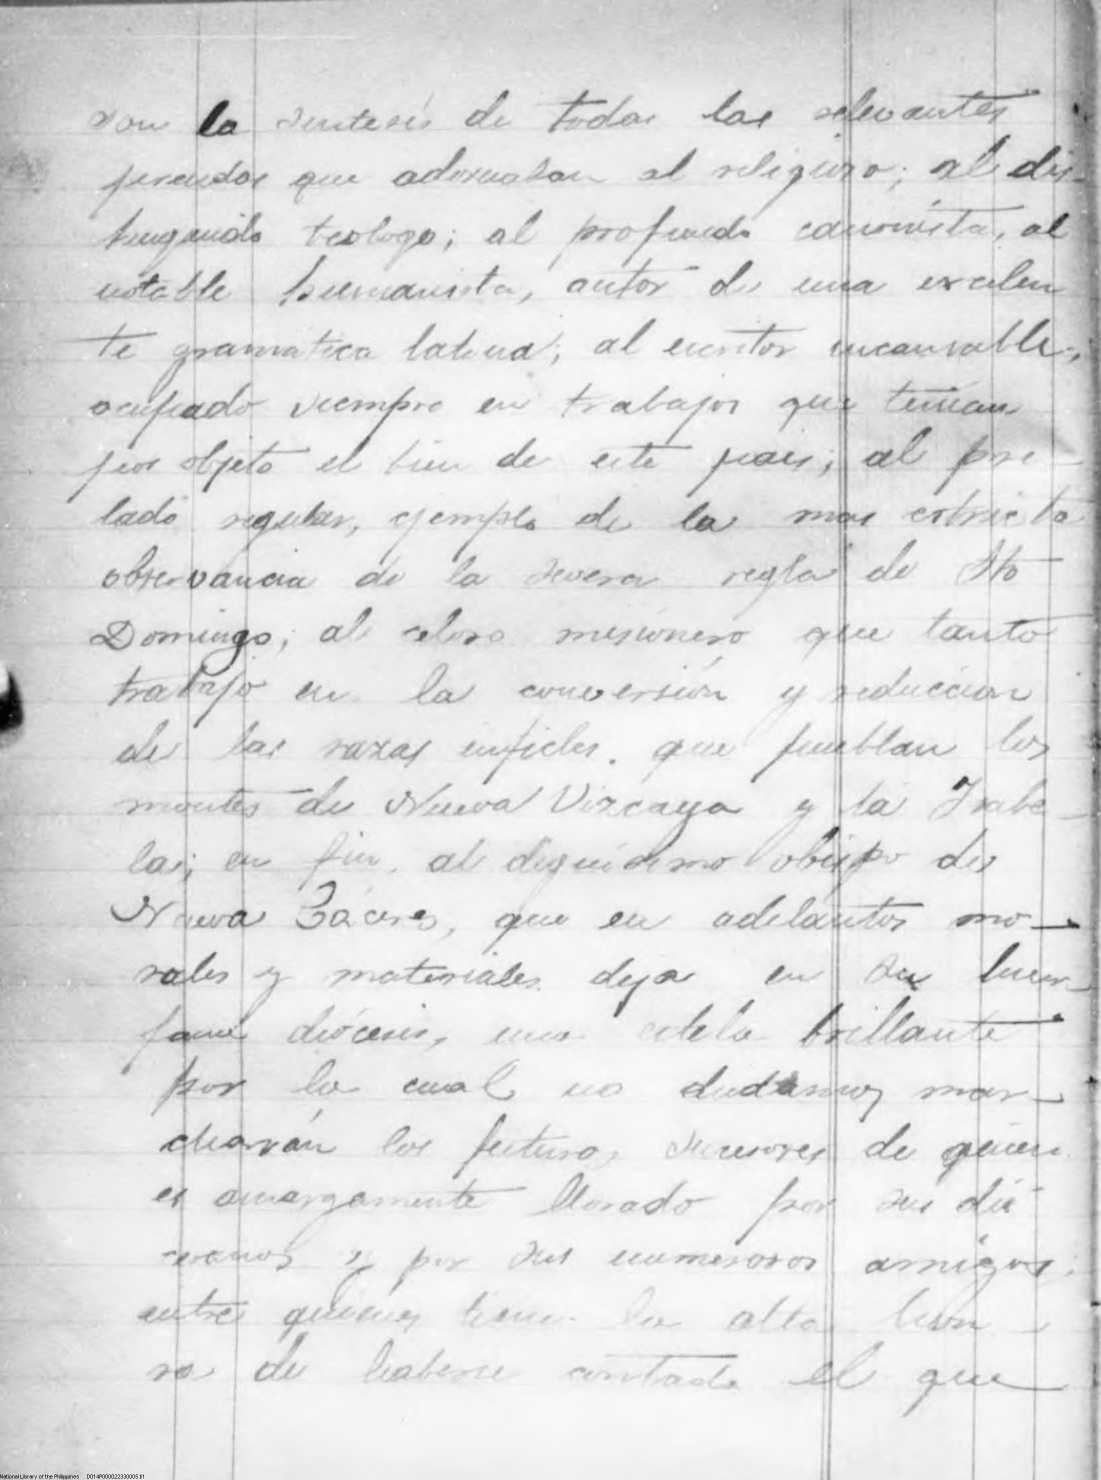 son la sintesis de todas las relevantes
prendas que adornaban al religioso; al dis-
tinguido teologo; al profundo canonista, al
notable humanista, autor de una excelen
te gramatica latina; al escritor incansable;
ocupado siempre en trabajos que tenian
por objeto el bien de este pais; al pre-
lado regular, ejemplo de la mas estricta
observancia de la severa regla de Sto
Domingo; al celoso misionero que tanto
trabajó en la conversión y reduccion
de las razas infieles que pueblan los
montes de Nueva Vizcaya y la Isabe-
la; en fin, al dignisimo obispo de
Nueva Cáceres, que en adelantos mo-
rales y materiales deja en su huer-
fana diócesis, una estela brillante
por la cual no dudamos mar-
charán los futuros sucesores de quien
es amargamente llorado por sus dio
cesanos y por sus numerosos amigos;
entre quienes tiene la alta hon-
ra de haberse contado el que
National Library of the Philippines D014P00002233000S.tif